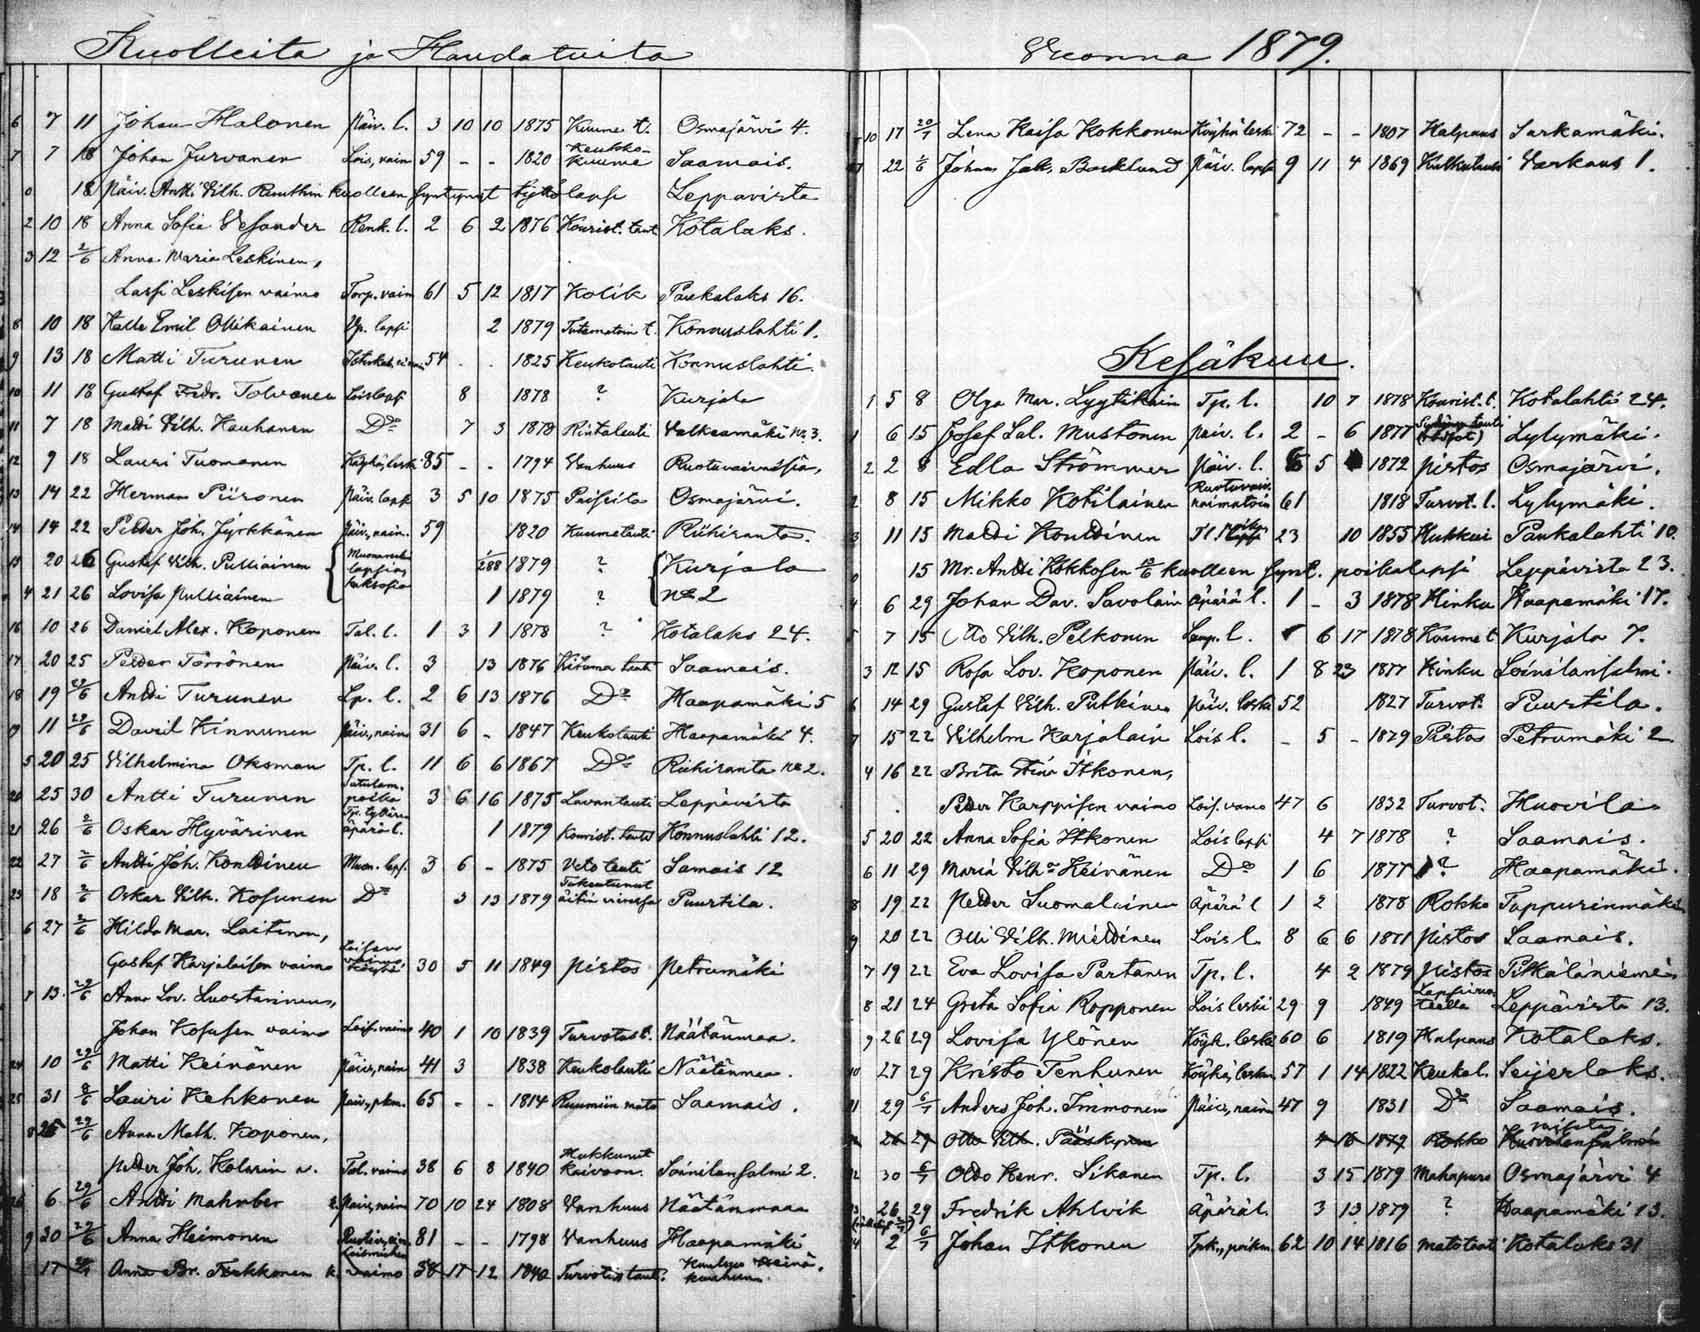 Kuolleita ja Haudatuita
6 7 11 Johan Halonen Päiv. l. 3 10 10 1875 Kuume t. Osmajärvi 4.
7 7 18 Johan Turvanen Lois, vaim 59 - - 1820 Keuhko-kuume Saamais.
0 18 Päiv. Antti Vilh. kuolleen syntynyt tyttö lapsi Leppävirta
2 10 18 Anna Sofia Vesander Renk. l. 2 6 2 1876 Kourist. taut Kotalaks.
3 12 2/6 Anna Maria Leskinen,
Lassi Leskisen vaimo Torp. vaim 61 5 12 1817 Kolik Paukalaks 16.
8 10 18 Kalle Emil Ollikainen lapsi 2 1879 Tutematoin t. Konnuslahti 1.
9 13 18 Matti Turunen 54 - - 1825 Keukotauti Konnuslahti.
10 11 18 Gustaf Fredr. Tolvanen Loislapsi 8 1878 ? Kurjala
11 7 18 Matti Vilh. Kauhanen Do 7 3 1878 Rintatauti Valkeamäki No 3.
12 9 18 Lauri Tuomanen Köyhä, leski 85 - - 1794 Vanhuus Ruotuvaivasia,
13 14 22 Herman Piironen Päiv. laps 3 5 10 1875 Paiseita Osmajärvi.
14 14 22 Petter Joh. Jyrkkänen Päiv, nain. 59 1820 Kuumetauti Riihiranta.
15 20 26 Gustaf Vilh. Pulliainen { Muonamiehen lapsia, kaksosia 1/288 1879 ? { Kurjala
4 21 26 Lovisa Pulliainen 1 1879 ? No 2
16 10 26 Daniel Alex. Koponen Tal. l. 1 3 1 1878 ? Kotalaks 24.
17 20 25 Petter Törrönen Päiv. l. 3 13 1876 Kuuma taut Saamais.
18 19 29/6 Antti Turunen Lp. l. 2 6 13 1876 Do Haapamäki 5
19 11 29/6 David Kinnunen Päiv, naim 31 6 - 1847 Keukotauti Haapamäki 4.
5 20 25 Vilhelmina Oksman Tp. l. 11 6 6 1867 Do Riihiranta No 2.
20 25 30 Antti Turunen poika 3 6 16 1875 Lavantauti Leppävirta
21 26 2/6 Oskar Hyvärinen äpärä l. 1 1879 Kourist. tauti Konnuslahti 12.
22 27 2/6 Antti Joh. Konttinen Muon. laps. 3 6 - 1875 Veto tauti Samais 12
23 18 2/6 Oskar Vilh. Kosunen Do 3 13 1879 Tukeutunut äitin vieressä Puurtila.
6 27 2/6 Hilda Mar. Laitinen,
Gustaf Karjalaisen vaimo Loisen vaimo köyhä 30 5 11 1849 Pistos Petrumäki
7 13 29/6 Anna Lov. Luostarinen,
Johan Kosusen vaimo Lois. vaimo 40 1 10 1839 Turvotus t. Näätänmaa.
24 10 29/6 Matti Keinänen Päiv, naim 41 3 1838 Keukotauti Näätänmaa.
25 31 8/6 Lauri Kehkonen 65 - - 1814 Ruumiin mato Saamais.
8 25 29/6 Anna Math. Koponen,
Petter Joh. Kolarin v. Tal. vaimo 38 6 8 1840 Hukkunut kaivoon. Soinilansalmi 2.
26 6 29/6 Antti Mahnber Päiv, naim 70 10 24 1808 Vanhuus Näätänmaa
9 30 29/6 Anna Heimonen 81 - - 1798 Vanhuus Haapamäki
17 Anna Br. Tarkkonen vaimo 38 17 12 1840 Turvotus taut. Kuuluu Heinä, kuuhun.
Vuonna 1879.
10 17 20/7 Lena Kaisa Kokkonen Köyhä leski 72 - - 1807 Halpaus Sarkamäki.
22 1/6 Johan Jak. Backlund Päiv. lapsi 9 11 4 1869 Kulkutauti Varkaus 1.
Kesäkuu.
1 5 8 Olga Mar. Lyytikäin Tp. l. 10 7 1878 Kourist. t. Kotalahti 24.
1 6 15 Josef Sal. Mustonen Päiv. l. 2 - 6 1877 Lylymäki.
2 2 8 Edla Strömmer Päiv. l. 6 5 1872 Pistos Osmajärvi.
2 8 15 Mikko Kotilainen Ruotuvaiv. naimatoin 61 1818 Turvot. t. Lylymäki.
3 11 15 Matti Konttinen 23 10 1855 Hukkui Paukalahti 10.
0 15 Mr. Antti Kokkosen 10/6 kuolleen synt. poikalapsi Leppävirta 23.
4 6 29 Johan Dav. Savolain Äpärä l. 1 - 3 1878 Hinku Haapamäki 17.
5 7 15 Otto Vilh. Pelkonen Lamp. l. 6 17 1878 Kuume t. Kurjala 7.
3 12 15 Rosa Lov. Koponen Päiv. l. 1 8 23 1877 Hinku Soinilansalmi.
6 14 29 Gustaf Vilh. Putkinen Päiv. leski 52 1827 Turvot. Puurtila.
7 15 22 Vilhelm Karjalain Lois l. - 5 - 1879 Pistos Petrumäki 2
4 16 22 Brita Stina Itkonen,
Petter Karppisen vaimo Lois. vaimo 47 6 1832 Turvot. Huovila
5 20 22 Anna Sofia Itkonen Lois lapsi 4 7 1878 ? Saamais.
6 11 29 Maria Vilha Keinänen Do 1 6 1877 ? Haapamäki.
8 19 22 Petter Suomalainen Äpärä l 1 2 1878 Rokko Tappurinmäki
9 20 22 Olli Vilh. Miettinen Lois l. 8 6 6 1871 Pistos Saamais.
7 19 22 Eva Lovisa Partanen Tp. l. 4 2 1879 Pistos Pitkäläniemi
8 21 24 Greta Sofia Ropponen Lois leski 29 9 1849 Leppävirta 13.
9 26 29 Lovisa Ylönen Köyh. leski 60 6 1819 Halpaus Kotalaks.
10 27 29 Kristo Tenhunen Köyhä, leskm 57 1 14 1822 Keukot. Seijerlaks.
11 29 6/7 Anders Joh. Immonen Päiv, naim 47 9 1831 Do Saamais.
26 29 Otto Vilh. Pääskynen 4 18 1879 Rokko
12 30 6/7 Otto Henr. Sikanen Tp. l. 3 15 1879 Mahapuru Osmajärvi 4
13 26 29 Fredrik Ahlvik Äpärä l. 3 13 1879 ? Haapamäki 13.
14 2 6/7 Johan Itkonen 62 10 14 1816 Matotauti Kotalaks 31